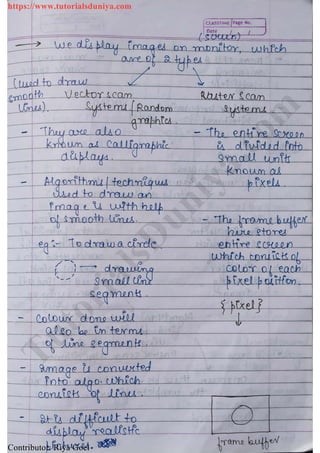 https://www.tutorialsduniya.com
Classtime Page No.
Date
→ we display images on monitor, which
are of 2 types
(used to draw
smooth
lines).
Vector scan
Systems / Random
graphics.
- They are also
known as Calligraphic
displays.
- Algorithms / techniques
used to draw an
image is with help
of smooth lines.
eg:- To draw a circle
→ drawing
small line
segments.
- Colour done will
also be in terms
of line segments.
- Image is converted
into algo which
consists of lines.
- It is difficult to
display realistic
Raster Scan
Systems.
- The entire screen
is divided into
small units
known as
pixels.
- The frame buffer
here stores
entire screen
which consists of
color of each
pixel position.
{ pixel }
frame buffer
Contributor: Riya Goel